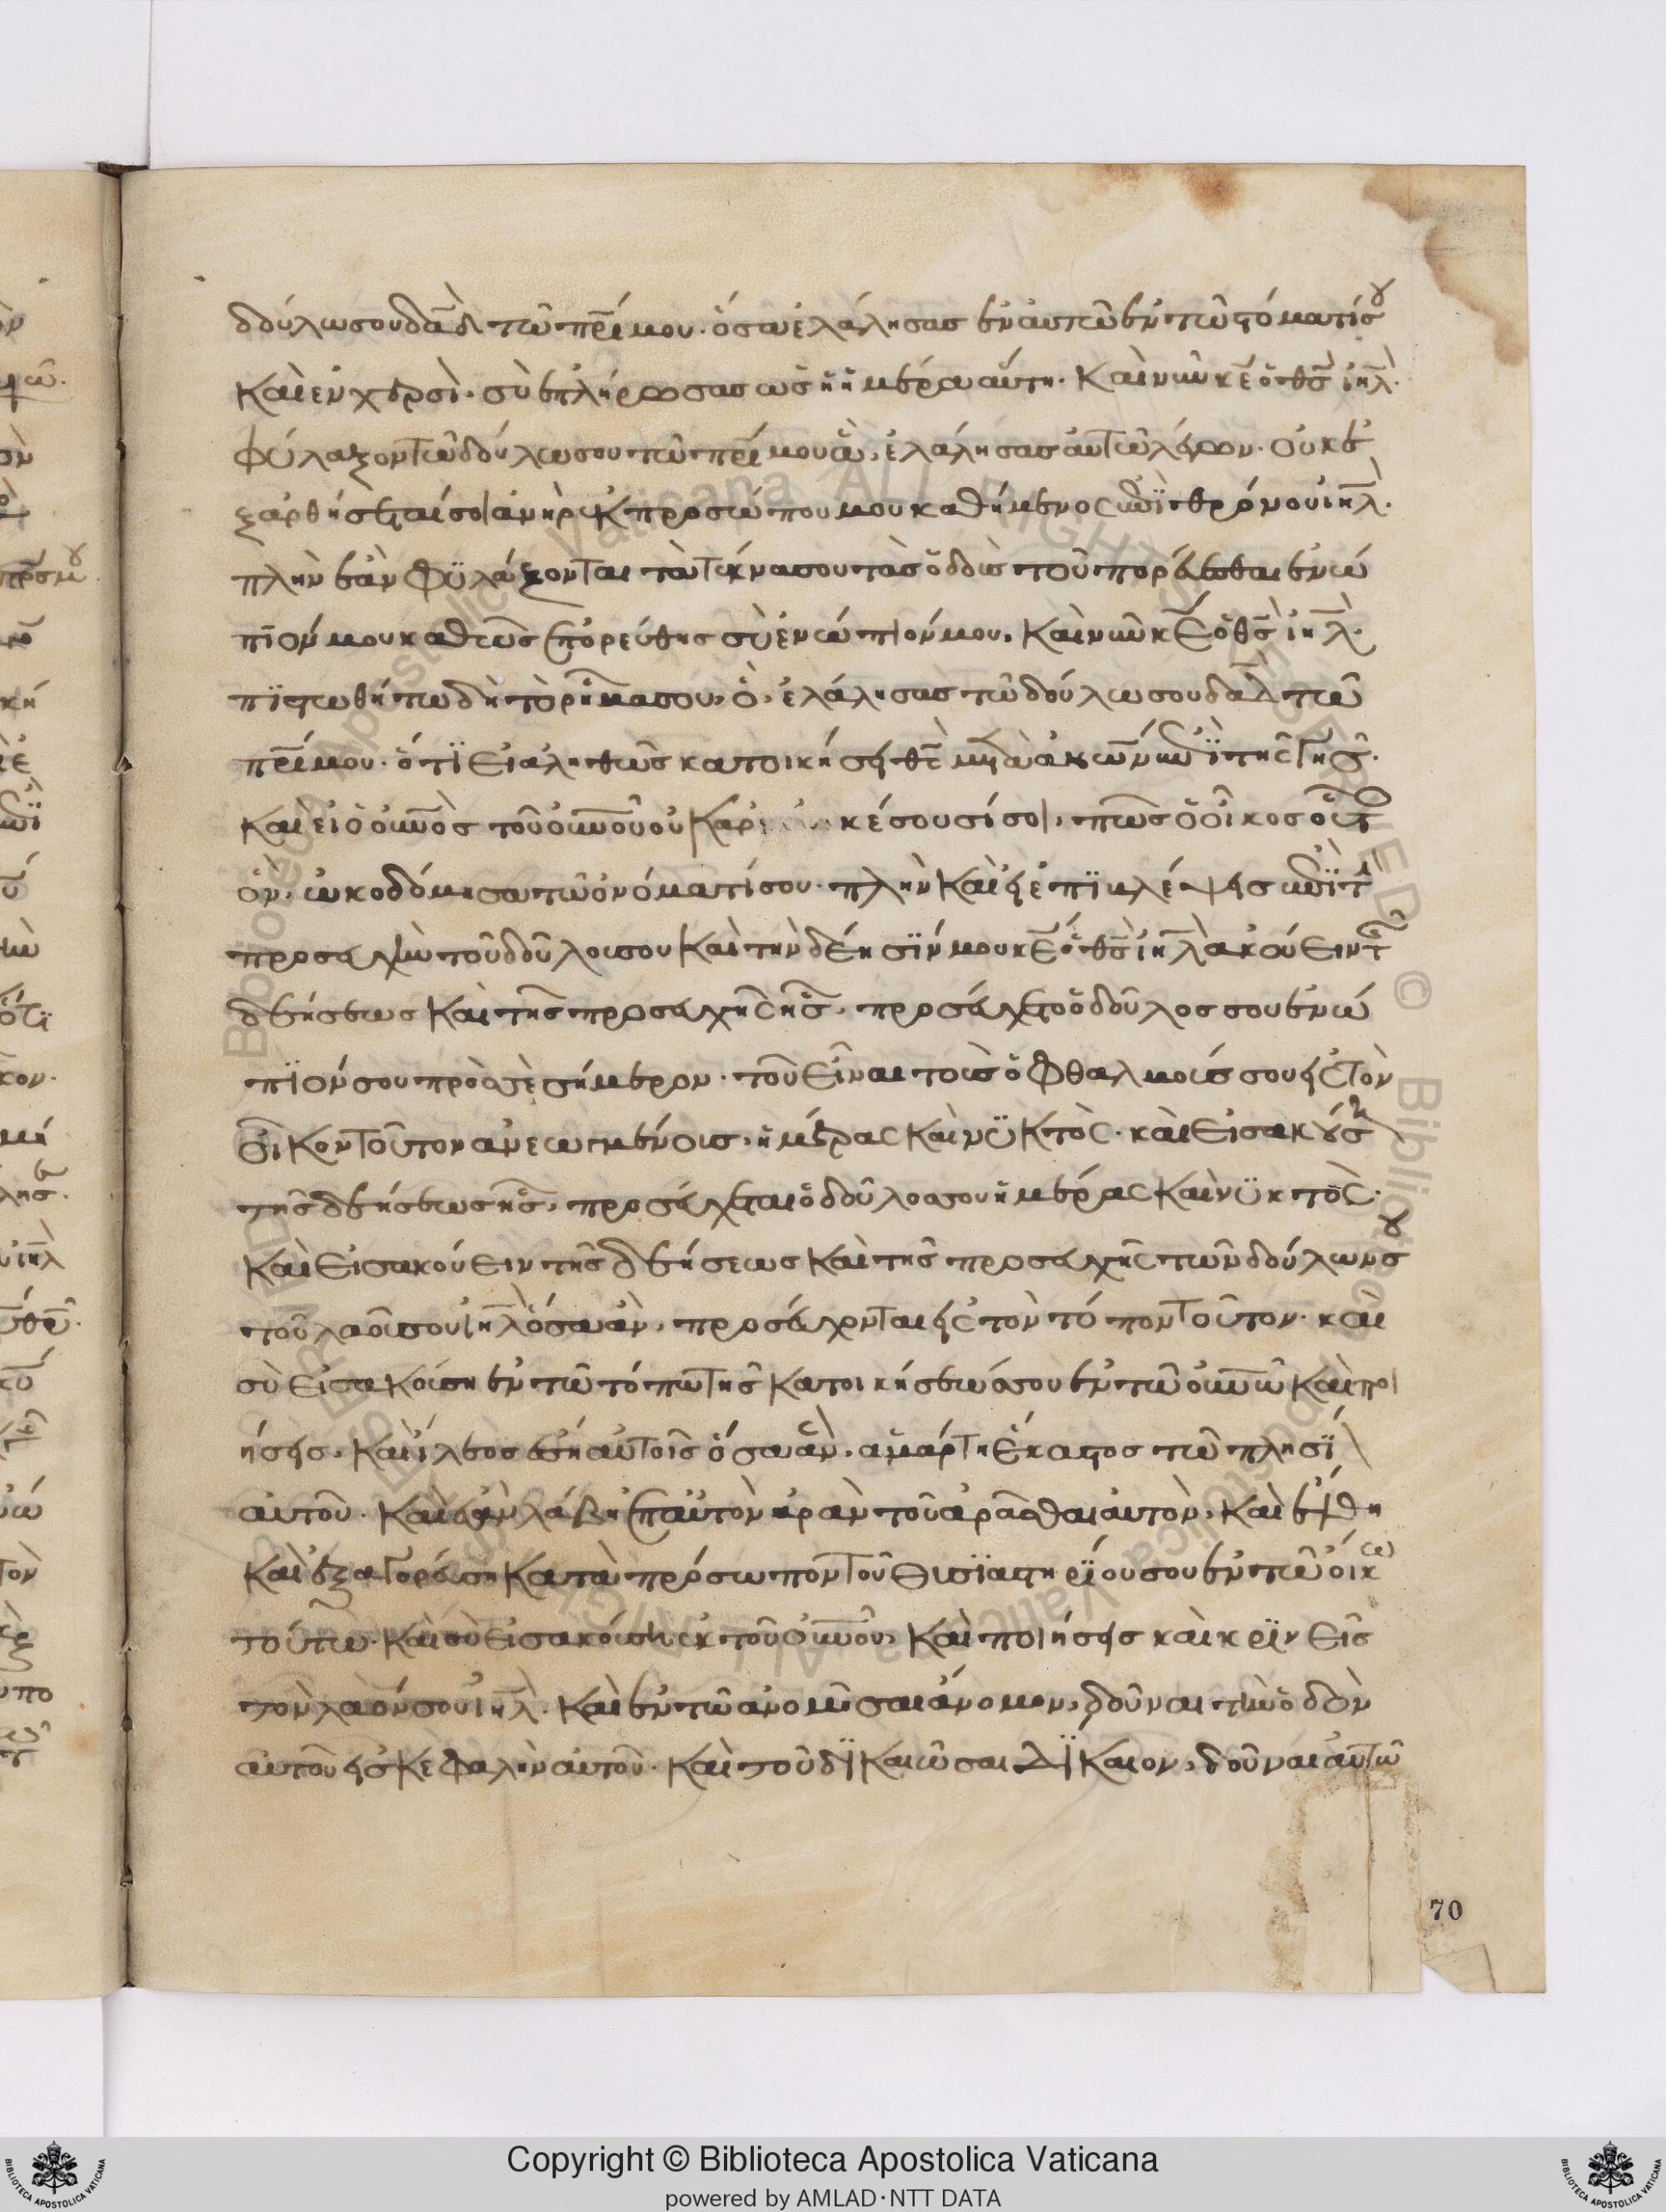 δούλω σου δα̅δ τῶ π̅ρί μου. ὅσα ἐλάλησας ἐν αὐτῶ ἐν τῶ στόματί σου
καὶ ἐν χερσί. σὺ ἐπλήρωσας ὡς ἡ ἡμέρα αὕτη. καὶ νῦν κ̅ε ὁ θ̅ς ι̅η̅λ.
φύλαξον τῶ δούλω σου τῶ π̅ρί μου ἃ, ἐλάλησας αὐτῶ λέγων. οὐκ ἐ
ξαρθήσεταί σοι ἀνὴρ ἐκ προσώπου μου καθήμενος ἐπὶ θρόνου ι̅η̅λ.
πλὴν ἐὰν φυλάξονται τὰ τέκνα σου τὰς ὁδοὺς τοῦ πορεύεσθαι ἐνώ
πιόν μου καθὼς ἐπορεύθης σὺ ἐνώπιόν μου. καὶ νῦν κ̅ε ὁ θ̅ς ι̅η̅λ.
πιστωθήτω δὴ τὸ ρῆμα σου, ὃ, ἐλάλησας τῶ δούλω σου δα̅δ τῶ
π̅ρί μου. ὅτι εἰ ἀληθῶς κατοικήσει θ̅ς μετὰ ἀ̅ν̅ω̅ν ἐπὶ τῆς γῆς.
καὶ εἰ ὁ ο̅υ̅νος τοῦ ο̅υ̅νοῦ οὐκ ἀρκέσουσί σοι, πῶς ὁ οἶκος οὗτος
ὃν, ὠκοδόμησα τῶ ὀνόματί σου. πλὴν καὶ ἐπιβλέψεις ἐπὶ τὴν
προσευχὴν τοῦ δούλου σου καὶ τὴν δέησίν μου κ̅ε ὁ θ̅ς ι̅η̅λ ἀκούειν τῆς
δεήσεως καὶ τῆς προσευχῆς ἧς, προσεύχεται ὁ δοῦλος σου ἐνώ
πιόν σου πρὸς σὲ σήμερον. τοῦ εἶναι τοὺς ὀφθαλμούς σου εἰς τὸν
οἶκον τοῦτον ἀνεωγμένους, ἡμέρας καὶ νυκτὸς. καὶ εἰσακούσῃ
τῆς δεήσεως ἧς, προσεύχεται ὁ δοῦλος σου ἡμέρας καὶ νυκτὸς.
καὶ εἰσακούειν τῆς δεήσεως καὶ τῆς προσευχῆς τῶν δούλων σου
τοῦ λαοῦ σου ι̅η̅λ ὅσα ἂν, προσεύχονται εἰς τὸν τόπον τοῦτον. καὶ
σὺ εἰσακούση ἐν τῶ τόπω τῆς κατοικήσεώς σου ἐν τῶ ο̅υ̅νῶ καὶ ποι
ήσεις, καὶ ἵλεος ἔση αὐτοῖς ὅσα ἂν, ἁμάρτη ἕκαστος τῶ πλησί
αὐτοῦ. καὶ ἐὰν λάβη ἐπ αὐτὸν ἀρὰν τοῦ ἀρᾶσθαι αὐτὸν, καὶ ἔλθη
καὶ ἐξαγορεύση κατὰ πρόσωπον τοῦ θυσιαστηρίου σου ἐν τῶ οἴκω
τούτω. καὶ σὺ εἰσακούσῃ ἐκ τοῦ ο̅υ̅νοῦ, καὶ ποιήσεις καὶ κρινεῖς
τὸν λαόν σου ι̅η̅λ. καὶ ἐν τῶ ἀνομῆσαι ἄνομον, δοῦναι τὴν ὁδὸν
αὐτοῦ εἰς κεφαλὴν αὐτοῦ. καὶ τοῦ δικαιῶσαι δίκαιον, δοῦναι αὐτῶ
70
Copyright © Biblioteca Apostolica Vaticana
powered by AMLAD·NTT DATA